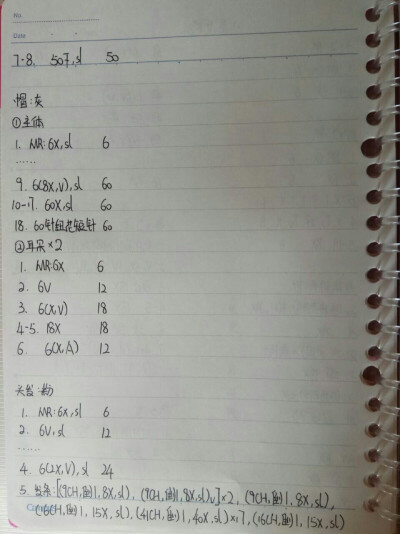 No.
Date
7-8. 50F,sl 50
帽:灰
①主体
1. MR:6X,sl 6
......
9. 6(8X,V),sl 60
10-17. 60X,sl 60
18. 60针纽花短针 60
②耳朵×2
1. MR:6X 6
2. 6V 12
3. 6(X,V) 18
4-5. 18X 18
6. 6(X,A) 12
头发:
1. MR:6X,sl 6
2. 6V,sl 12
......
4. 6(2X,V),sl 24
5. 发条:[(9CH,倒1,8X,sl),(9CH,倒1,8X,sl)v]×2,(9CH,倒1,8X,sl),
(16CH,倒1,15X,sl),(41CH,倒1,40X,sl)×17,(16CH,倒1,15X,sl)